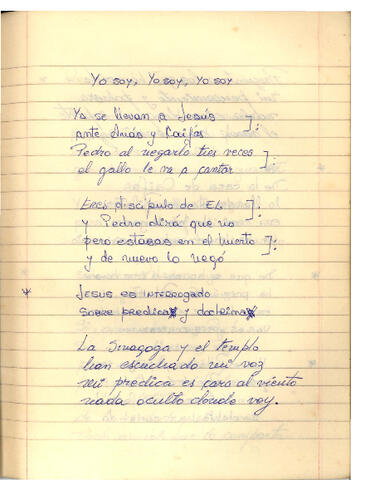 Yo soy, Yo soy, Yo soy
Ya se llevan a Jesús
ante Anás y Caifás
Pedro al negarlo tres veces
el gallo le va a cantar
Eres discípulo de EL
y Pedro dirá que no
pero estabas en el huerto
y de nuevo lo negó
JESUS ES INTERROGADO
SOBRE PREDICA y doctrina
La Sinagoga y el templo
han escuchado mi voz
mi predica es cara al viento
nada oculto donde voy.